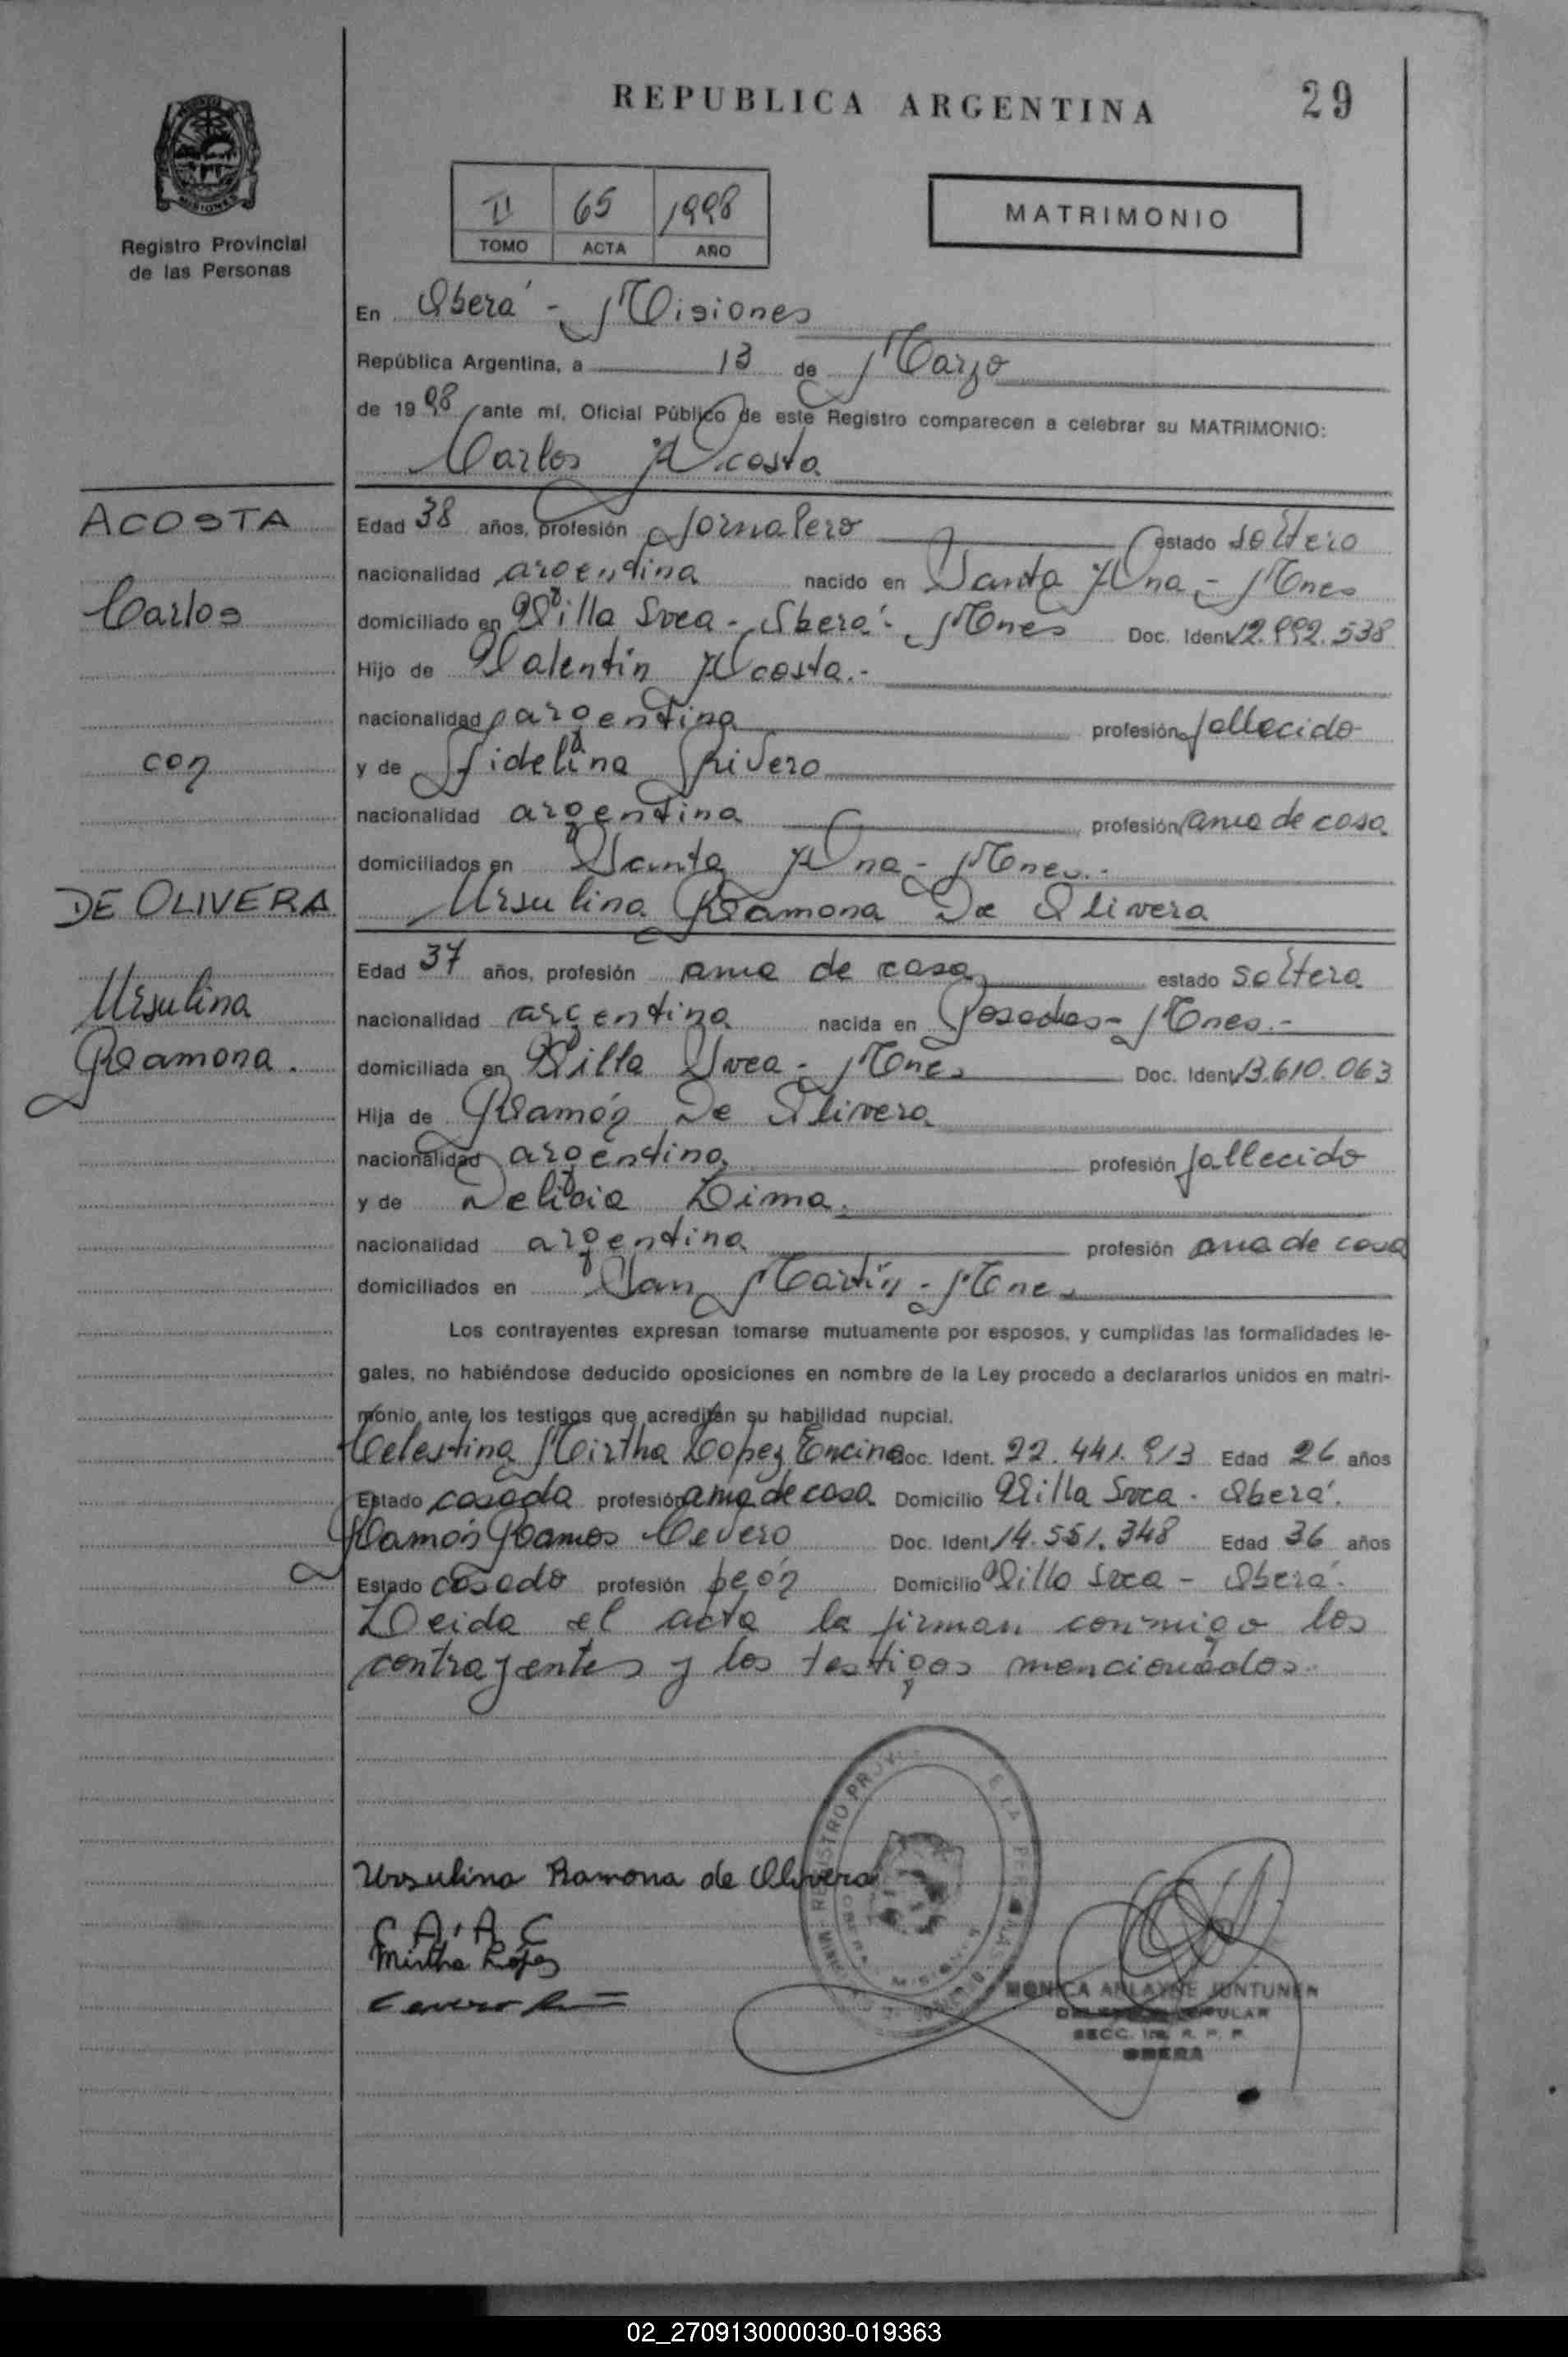 REPUBLICA ARGENTINA
29
MISIONES
Registro Provincial
de las Personas
II 65 1998
TOMO ACTA AÑO
MATRIMONIO
En Oberá - Misiones
República Argentina, a 13 de Marzo
de 1998, ante mí, Oficial Público de este Registro comparecen a celebrar su MATRIMONIO:
Carlos Acosta
ACOSTA
Edad 38 años, profesión Jornalero estado soltero
nacionalidad argentina nacido en Santa Ana - Mnes
Carlos
domiciliado en Villa Svea - Oberá - Mnes Doc. Ident. 12.992.538
Hijo de Valentín Acosta.-
nacionalidad argentina profesión fallecido
con
y de Fidelina Rivero
nacionalidad argentina profesión ama de casa
domiciliados en Santa Ana - Mnes.-
DE OLIVERA
Ursulina Ramona De Olivera
Edad 37 años, profesión ama de casa estado soltera
Ursulina
nacionalidad argentina nacida en Posadas - Mnes.-
Ramona.
domiciliada en Villa Svea - Mnes Doc. Ident. 13.610.063
Hija de Ramón De Olivera
nacionalidad argentina profesión fallecido
y de Delicia Lima.
nacionalidad argentina profesión ama de casa
domiciliados en San Martín - Mnes
Los contrayentes expresan tomarse mutuamente por esposos, y cumplidas las formalidades le-
gales, no habiéndose deducido oposiciones en nombre de la Ley procedo a declararlos unidos en matri-
monio, ante los testigos que acreditan su habilidad nupcial.
Celestina Mirtha Lopez Encina Doc. Ident. 22.441.913 Edad 26 años
Estado casada profesión ama de casa Domicilio Villa Svea - Oberá.
Ramón Ramos Cevero Doc. Ident. 14.551.348 Edad 36 años
Estado casado profesión peón Domicilio Villa Svea - Oberá.
Leida el acta la firman conmigo los
contrayentes y los testigos mencionados.
Ursulina Ramona de Olivera
C A A C
Mirtha López
Cevero
MONICA ARLAYNE JUNTUNEN
SECC. 1ra. R. P. P.
OBERA
02_270913000030-019363